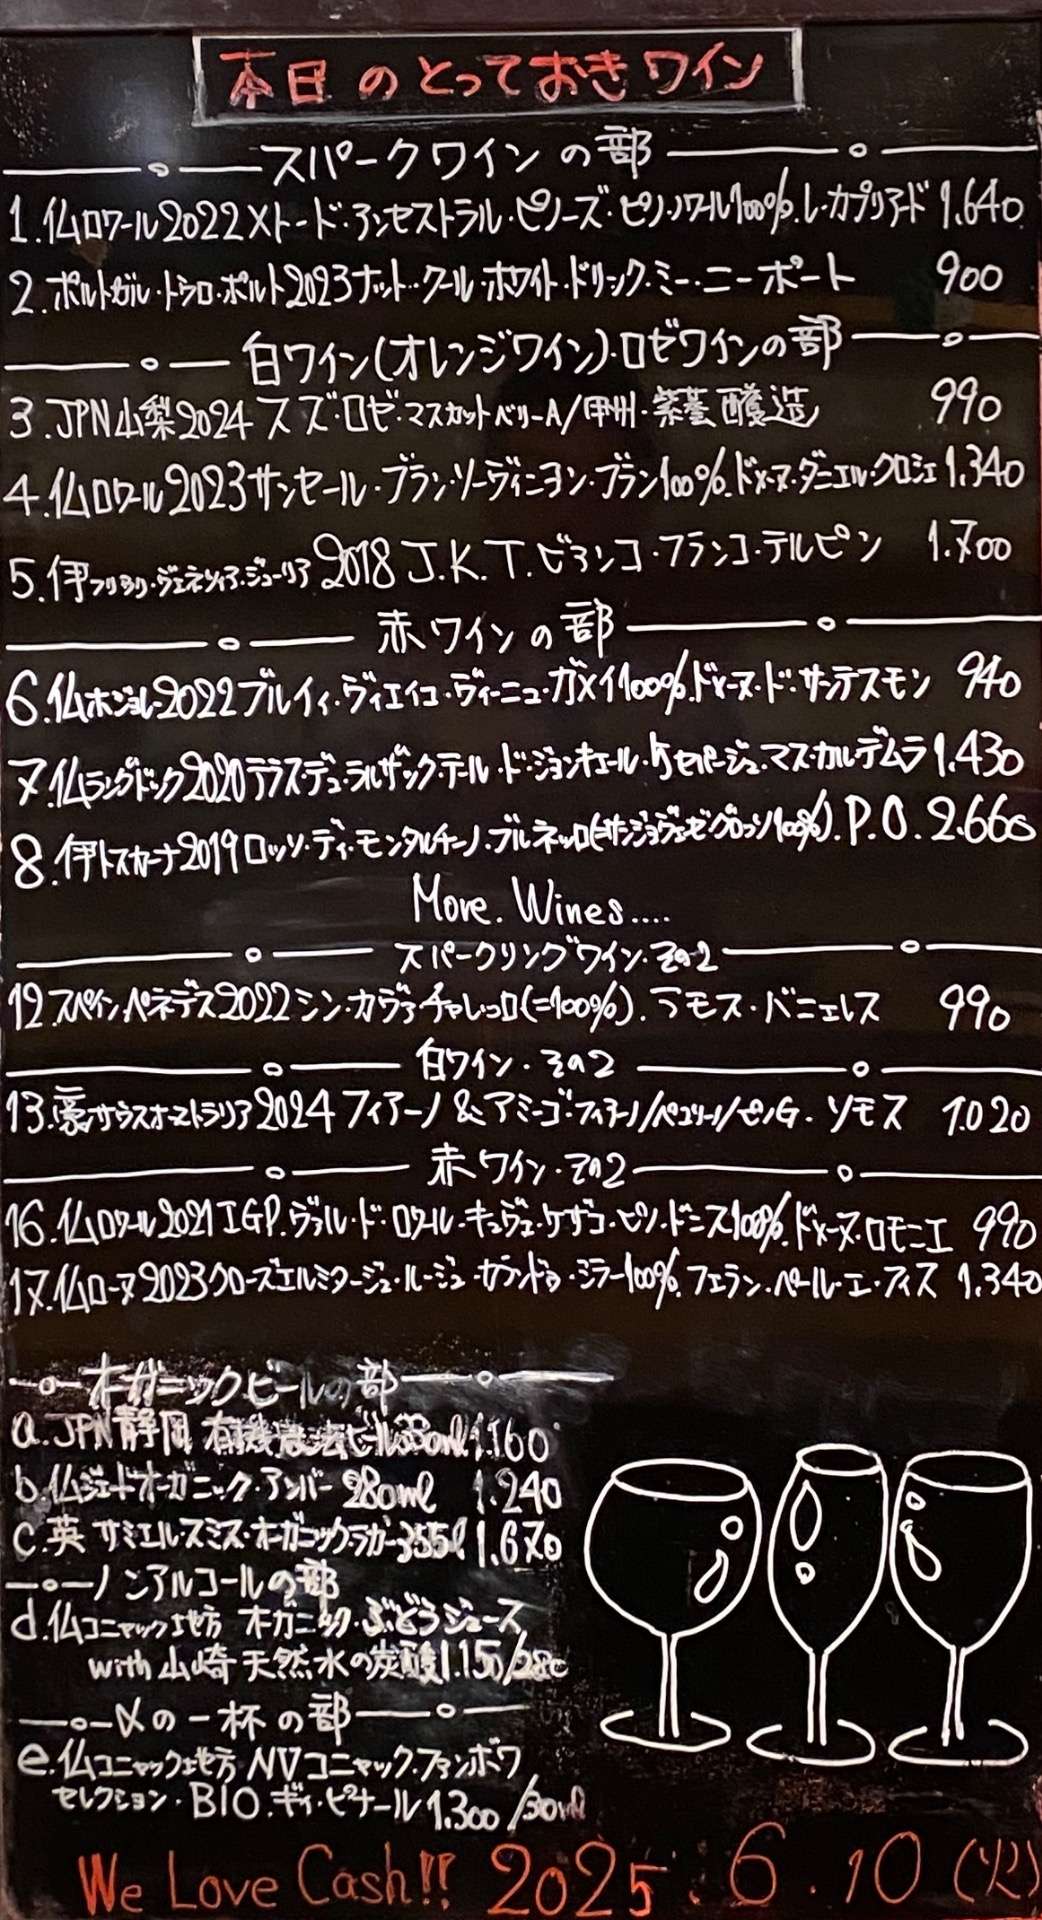 本日のとっておきワイン
スパークワインの部
1.仏ロワール2022メトード・アンセストラル・ピノーズ・ピノ・ノワール100%.レ・カプリアード 1.640
2.ポルトガル・トウロ・ポルト2023ナット・クール・ホワイト・ドリンク・ミー・ニーポート 900
白ワイン(オレンジワイン)・ロゼワインの部
3.JPN山梨2024スズ・ロゼ・マスカットベリーA/甲州・紫菫醸造 990
4.仏ロワール2023サンセール・ブラン・ソーヴィニヨン・ブラン100%.ドメーヌ・ダニエル・クロシェ 1.340
5.伊フリウリ・ヴェネツィア・ジューリア2018 J.K.T.ビアンコ・フランコ・テルピン 1.700
赤ワインの部
6.仏ボジョレー2022ブルイィ・ヴィエイユ・ヴィーニュ・ガメイ100%.ドメーヌ・ド・サンテスモン 940
7.仏ラングドック2020テラス・デュ・ラルザック・テール・ド・ジョンキエール・ケセパージュ.マス・カルデムラ 1.430
8.伊トスカーナ2019ロッソ・ディ・モンタルチーノ・ブルネッロ(=サンジョヴェーゼグロッソ100%).P.O. 2.660
More. Wines....
スパークリングワイン・その2
12.スペイン・ペネデス2022シン・カヴァ・チャレッロ(=100%).ラモス・バニェレス 990
白ワイン・その2
13.豪サウスオーストラリア2024フィアーノ&アミーゴ・フィアーノ/ペコリーノ/ピノG.ソモス 1.020
赤ワイン・その2
16.仏ロワール2021 IGP.ヴァル・ド・ロワール・キュヴェ・ケザコ・ピノ・ドニス100%.ドメーヌ・ロモニエ 990
17.仏ローヌ2023クローズエルミタージュ・ルージュ・カランドゥ・シラー100%.フェラン・ペール・エ・フィス 1.340
オガニックビールの部
a.JPN静岡 有機農法ビール330ml 1.160
b.仏ジェードオーガニック・アンバー 280ml 1.240
c.英 サミエル・スミス・オーガニックラガー355l 1.670
ノンアルコールの部
d.仏コニャック地方 オガニック・ぶどうジュース
with山崎天然水の炭酸1.150/280
〆の一杯の部
e.仏コニャック地方NVコニャック・ファンボワ
セレクション・BIO.ギィ・ピナール1.300/30ml
We Love Cash!! 2025.6.10(火)